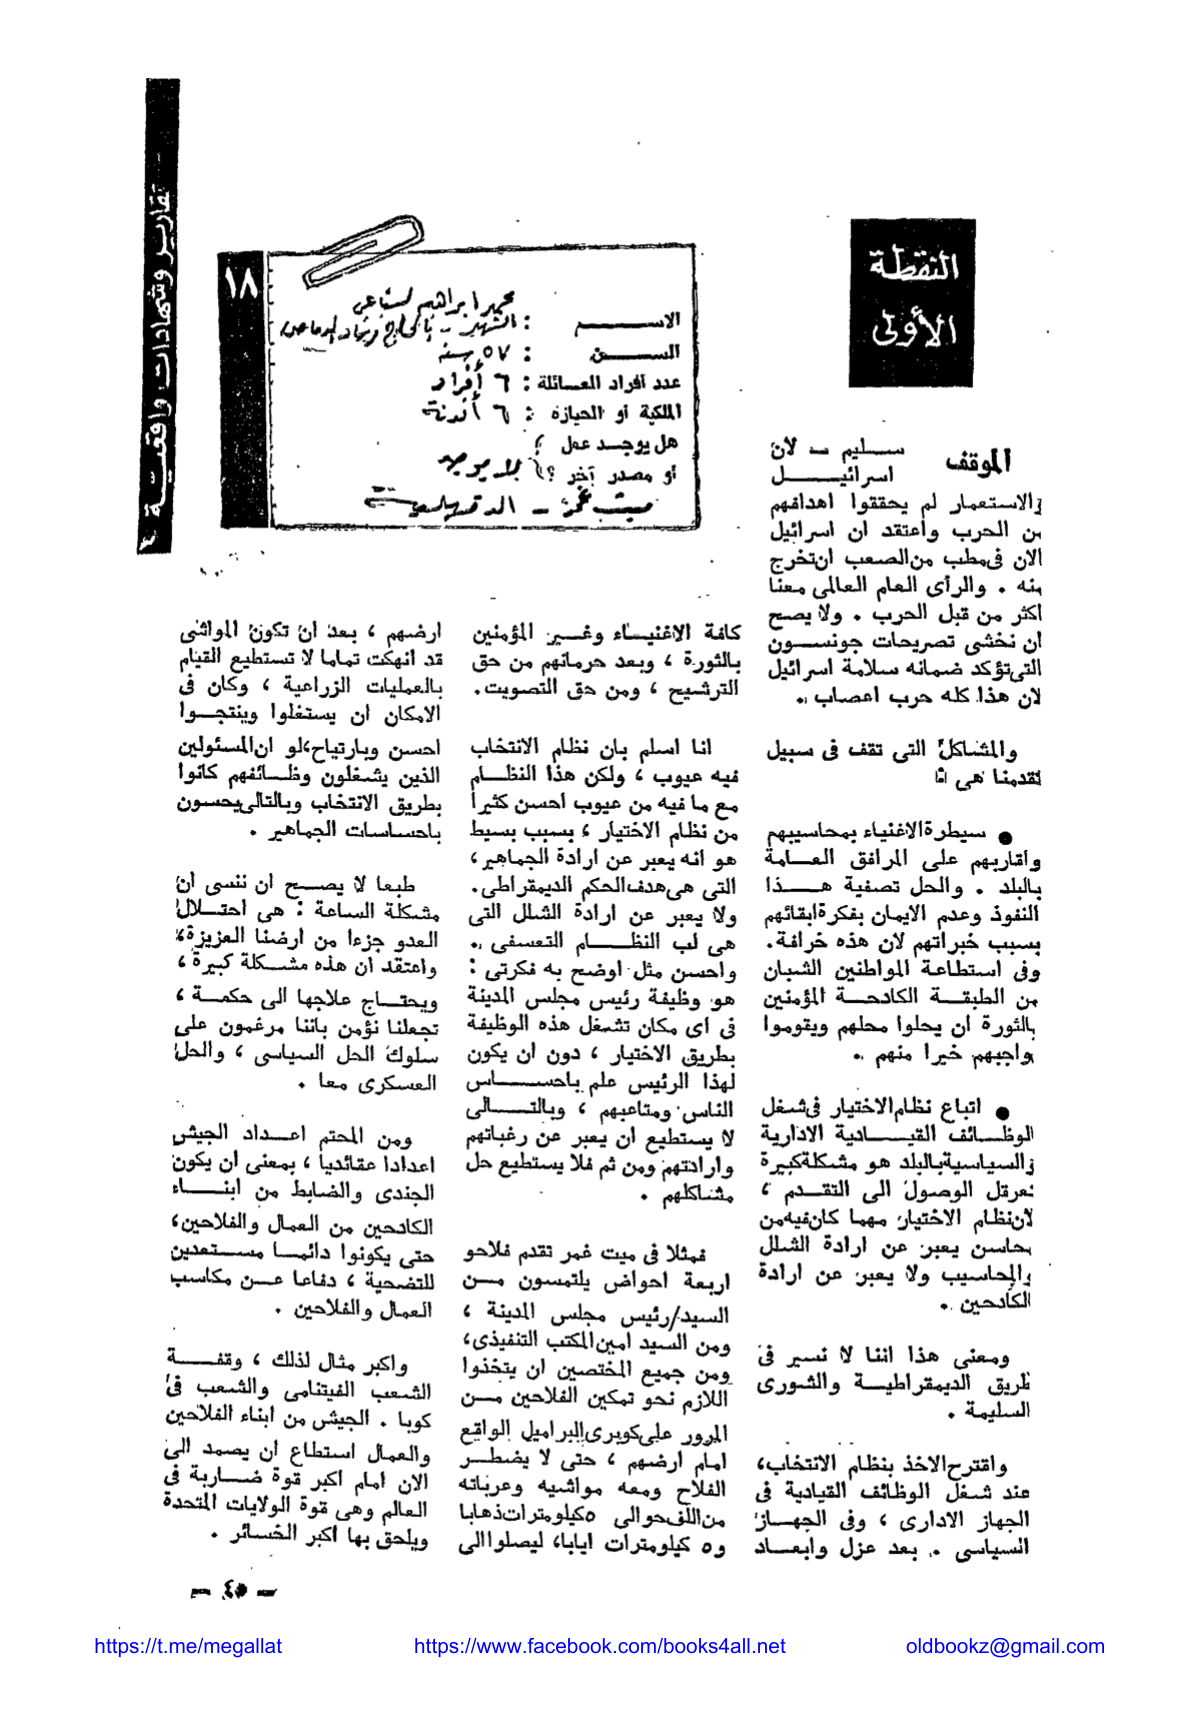 تقارير وشهادات واقعية
النقطة
الأولى
١٨
محمد ابراهيم
الاســـــــم : الشهير - بالحاج
الســــــن : ٥٧ سنة
عدد أفراد العـائلة : ٦ أفراد
الملكية أو الحيازة : ٦ أفدنة
هل يوجـد عمل ؟
أو مصدر آخر ؟ لا يوجد
ميت غمر - الدقهلية
الموقف ســليم — لان
اسرائيــــل
والاستعمار لم يحققوا اهدافهم
من الحرب واعتقد ان اسرائيل
الان فى مطب من الصعب ان تخرج
منه . والرأى العام العالمى معنا
اكثر من قبل الحرب . ولا يصح
ان نخشى تصريحات جونســـون
التى تؤكد ضمانه سلامة اسرائيل
لان هذا كله حرب اعصاب .
والمشاكل التى تقف فى سبيل
تقدمنا هى :
● سيطرة الاغنياء بمحاسيبهم
واقاربهم على المرافق العــامة
بالبلد . والحل تصفية هـــذا
النفوذ وعدم الايمان بفكرة ابقائهم
بسبب خبراتهم لان هذه خرافة.
وفى استطاعة المواطنين الشبان
من الطبقــة الكادحــة المؤمنين
بالثورة ان يحلوا محلهم ويقوموا
بواجبهم خيرا منهم .
● اتباع نظام الاختيار فى شغل
الوظــائف القيــادية الادارية
والسياسية بالبلد هو مشكلة كبيرة
تعرقل الوصول الى التقــدم ،
لان نظام الاختيار مهما كان فيه من
محاسن يعبر عن ارادة الشلل
والمحاسيب ولا يعبر عن ارادة
الكادحين .
ومعنى هذا اننا لا نسير فى
طريق الديمقراطيــة والشورى
السليمة .
واقترح الاخذ بنظام الانتخاب،
عند شــغل الوظائف القيادية فى
الجهاز الادارى ، وفى الجهــاز
السياسى . بعد عزل وابعــاد
كافة الاغنيــاء وغــير المؤمنين
بالثورة ، وبعد حرمانهم من حق
الترشيح ، ومن حق التصويت.
انا اسلم بان نظام الانتخاب
فيه عيوب ، ولكن هذا النظــام
مع ما فيه من عيوب احسن كثيرا
من نظام الاختيار ، بسبب بسيط
هو انه يعبر عن ارادة الجماهير،
التى هى هدف الحكم الديمقراطى.
ولا يعبر عن ارادة الشلل التى
هى لب النظــام التعسفى .
واحسن مثل اوضح به فكرتى :
هو وظيفة رئيس مجلس المدينة
فى اى مكان تشغل هذه الوظيفة
بطريق الاختيار ، دون ان يكون
لهذا الرئيس علم باحســاس
الناس ومتاعبهم ، وبالتــالى
لا يستطيع ان يعبر عن رغباتهم
وارادتهم ومن ثم فلا يستطيع حل
مشاكلهم .
فمثلا فى ميت غمر تقدم فلاحو
اربعة احواض يلتمسون مــن
السيد/رئيس مجلس المدينة ،
ومن السيد امين المكتب التنفيذى،
ومن جميع المختصين ان يتخذوا
اللازم نحو تمكين الفلاحين مــن
المرور على كوبرى البراميل الواقع
امام ارضهم ، حتى لا يضطــر
الفلاح ومعه مواشيه وعرباته
من اللف حوالى ٥ كيلومترات ذهابا
و٥ كيلومترات ايابا، ليصلوا الى
ارضهم ، بعد ان تكون المواشى
قد انهكت تماما لا تستطيع القيام
بالعمليات الزراعية ، وكان فى
الامكان ان يستغلوا وينتجــوا
احسن وبارتياح، لو ان المسئولين
الذين يشغلون وظــائفهم كانوا
بطريق الانتخاب وبالتالى يحسون
باحساسات الجماهير .
طبعا لا يصــح ان ننسى ان
مشكلة الساعة : هى احتــلال
العدو جزءا من ارضنا العزيزة،
واعتقد ان هذه مشــكلة كبيرة ،
ويحتــاج علاجها الى حكمــة ،
تجعلنا نؤمن باننا مرغمون على
سلوك الحل السياسى ، والحل
العسكرى معا .
ومن المحتم اعــداد الجيش
اعدادا عقائديا ، بمعنى ان يكون
الجندى والضابط من ابنــاء
الكادحين من العمال والفلاحين،
حتى يكونوا دائمــا مســتعدين
للتضحية ، دفاعا عــن مكاسب
العمال والفلاحين .
واكبر مثال لذلك ، وقفــة
الشعب الفيتنامى والشعب فى
كوبا . الجيش من ابناء الفلاحين
والعمال استطاع ان يصمد الى
الان امام اكبر قوة ضــاربة فى
العالم وهى قوة الولايات المتحدة
ويلحق بها اكبر الخسائر .
— ٤٥ —
https://t.me/megallat
https://www.facebook.com/books4all.net
oldbookz@gmail.com